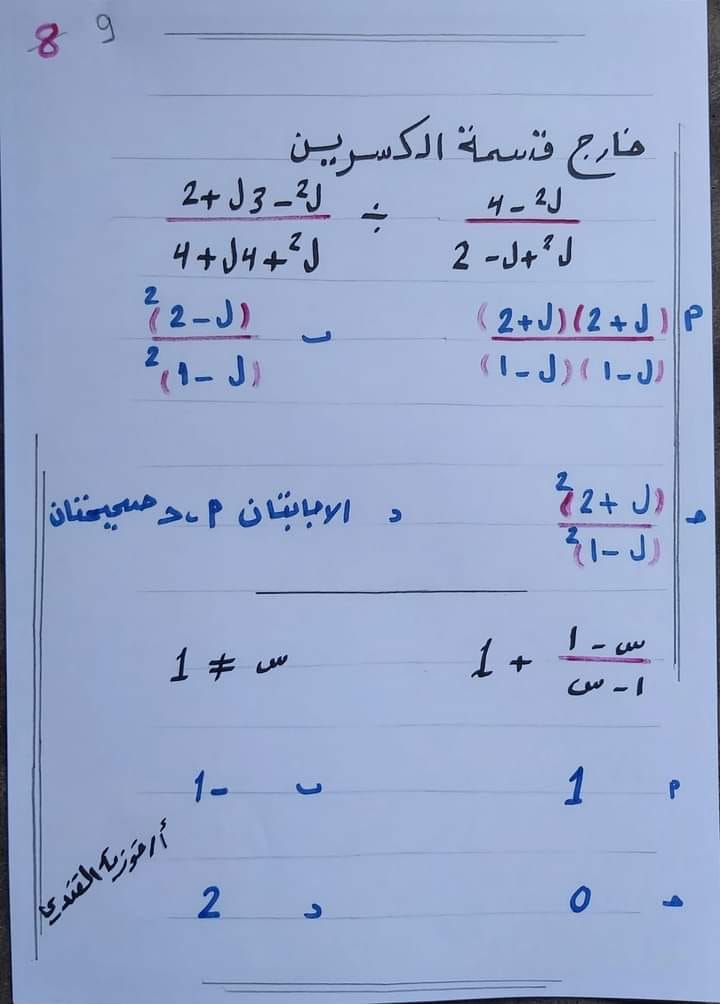 8 9
خارج قسمة الكسرين
(ل² - 4) / (ل² + ل - 2) ÷ (ل² - 3ل + 2) / (ل² + 4ل + 4)
أ (ل + 2)(ل + 2) / (ل - 1)(ل - 1) ب (ل - 2)² / (ل - 1)²
حـ (ل + 2)² / (ل - 1)² د الاجابتان أ، حـ صحيحتان
(س - 1) / (1 - س) + 1 س ≠ 1
أ 1 ب -1
حـ 0 د 2